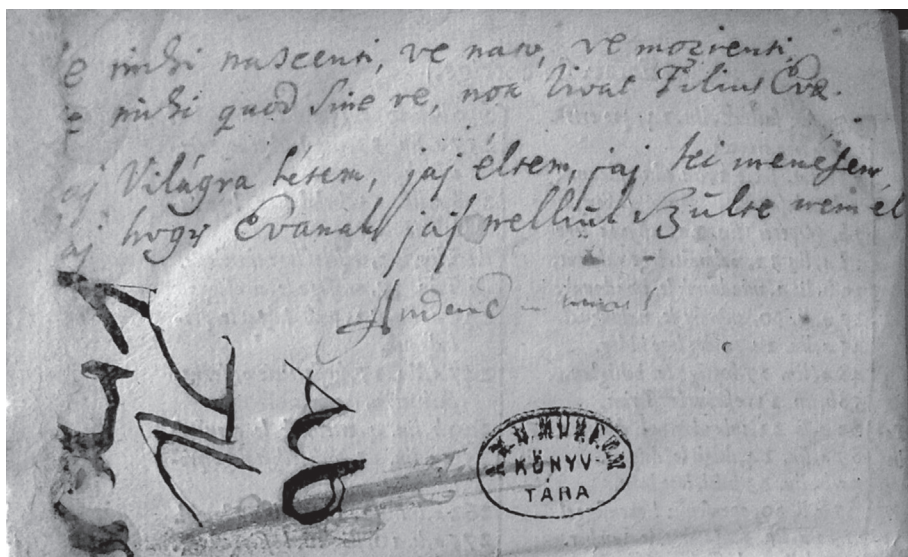 e mihi nascenti, ve nato, ve morienti,
e mihi quod sine ve, non vivat Filius Evæ.
aj Világra létem, jaj éltem, jaj ki menésem,
aj hogy Evanak jaj nelkül szülse nem él
Audend
A M. N. MUZEUM
KÖNYV-
TÁRA